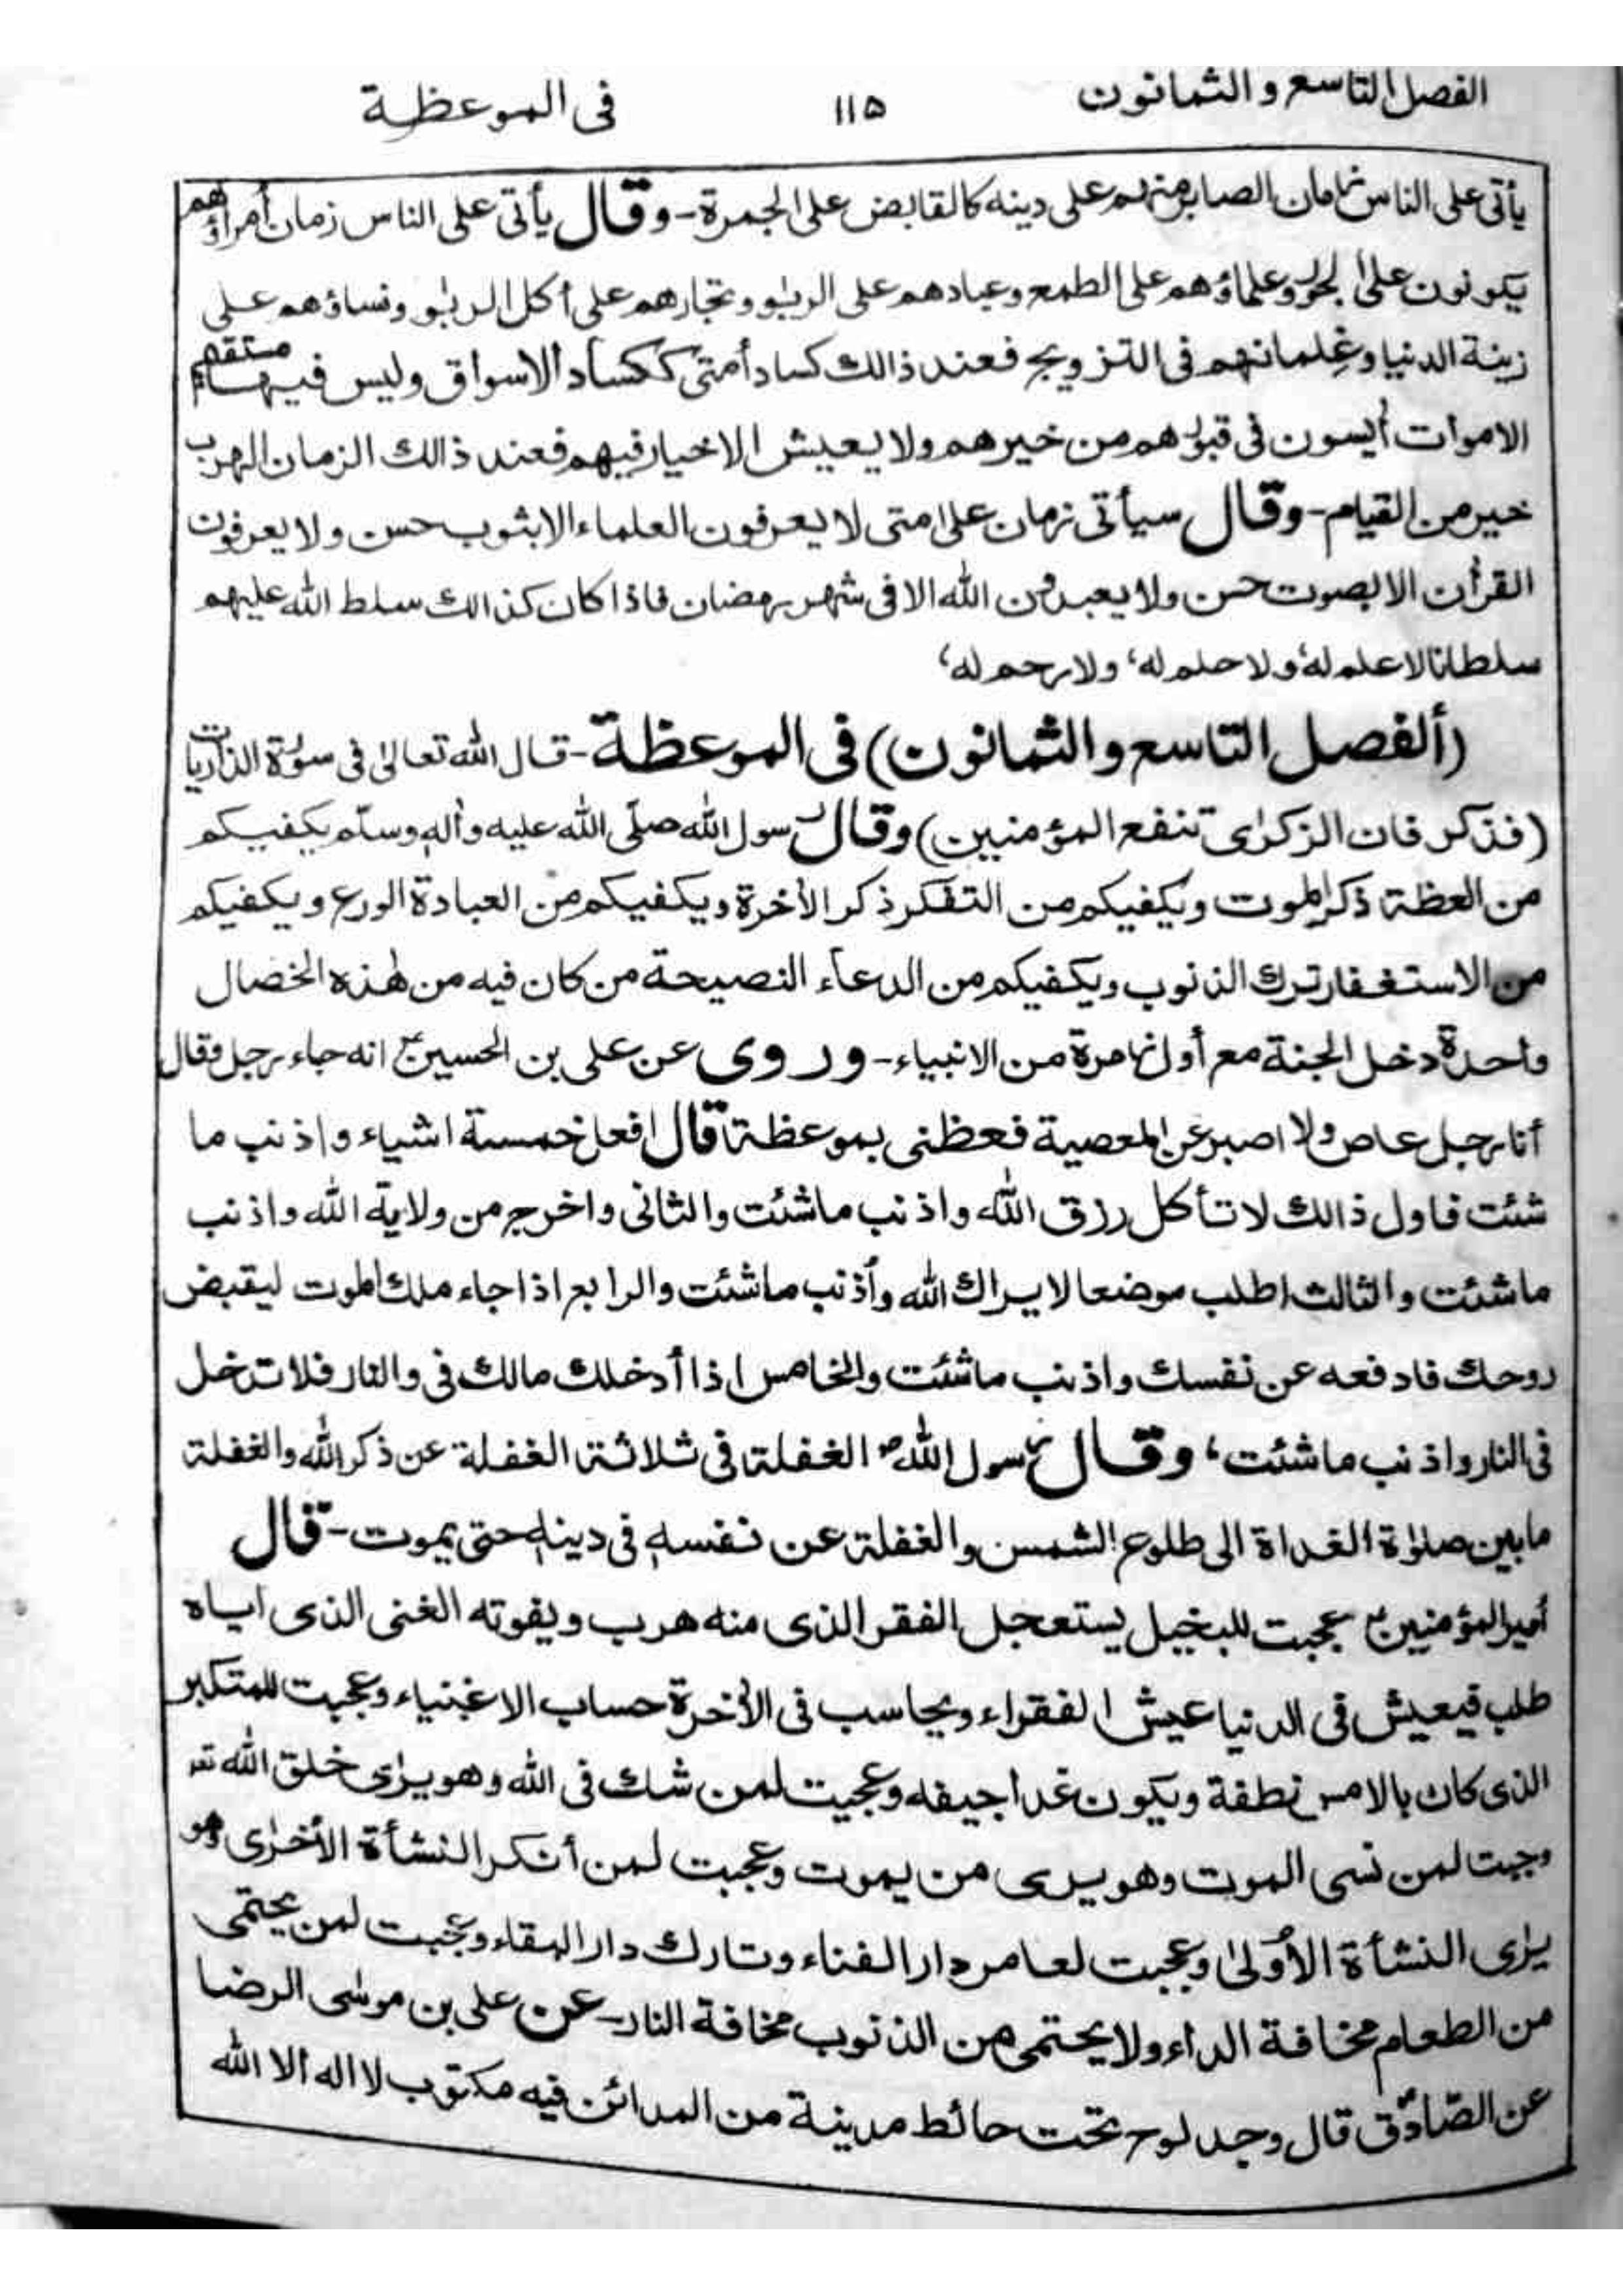 الفصل التاسع و الثمانون ١١٥ فى الموعظة
يأتى على الناس زمان الصابر منهم على دينه كالقابض على الجمرة - وقال يأتى على الناس زمان أمراؤهم
يكونون على الجور وعلماؤهم على الطمع وعبادهم على الربٰو وتجارهم على أكل الربٰو ونساؤهم على
زينة الدنيا وغلمانهم فى التزويج فعند ذالك كساد أمتى ككساد الاسواق وليس فيها مستقيم
الاموات أيسون فى قبورهم من خيرهم ولا يعيش الاخيار فيهم فعند ذالك الزمان الهرب
خير من القيام - وقال سيأتى زمان على امتى لا يعرفون العلماء الا بثوب حسن ولا يعرفون
القرأن الا بصوت حسن ولا يعبدون الله الا فى شهر رمضان فاذا كان كذالك سلط الله عليهم
سلطانا لا علم له، ولا حلم له، ولا رحم له،
(ألفصل التاسع و الثمانون) فى الموعظة - قال الله تعالىٰ فى سورة الذاريات
(فذكر فان الزكرٰى تنفع المؤمنين) وقال رسول الله صلّى الله عليه وأله وسلّم يكفيكم
من العظة ذكر الموت ويكفيكم من التفكر ذكر الأخرة ويكفيكم من العبادة الورع ويكفيكم
من الاستغفار ترك الذنوب ويكفيكم من الدعآء النصيحة من كان فيه من هٰذه الخصال
واحدة دخل الجنة مع أول زمرة من الانبياء - وروى عن على بن الحسين ع انه جاء رجل وقال
أنا رجل عاص ولا اصبر عن المعصية فعظنى بموعظة قال افعل خمسة اشياء و اذنب ما
شئت فاول ذالك لا تأكل رزق الله و اذنب ما شئت والثانى واخرج من ولاية الله و اذنب
ما شئت والثالث اطلب موضعا لا يراك الله وأذنب ما شئت والرابع اذا جاء ملك الموت ليقبض
روحك فادفعه عن نفسك و اذنب ما شئت والخامس اذا أدخلك مالك فى والنار فلا تدخل
فى النار و اذنب ما شئت، وقال رسول الله ص الغفلة فى ثلاثة الغفلة عن ذكر الله والغفلة
ما بين صلوٰة الغداة الى طلوع الشمس والغفلة عن نفسه فى دينه حتى يموت - قال
أمير المؤمنين ع عجبت للبخيل يستعجل الفقر الذى منه هرب ويفوته الغنى الذى اياه
طلب فيعيش فى الدنيا عيش الفقراء ويحاسب فى الأخرة حساب الاغنياء وعجبت للمتكبر
الذى كان بالامس نطفة ويكون غدا جيفه وعجبت لمن شك فى الله وهو يرٰى خلق الله تعـ
وجبت لمن نسى الموت وهو يرى من يموت وعجبت لمن أنكر النشأة الأخرٰى وهو
يرٰى النشأة الأولىٰ وعجبت لعامر دار الفناء وتارك دار البقاء وعجبت لمن يحتمى
من الطعام مخافة الداء ولا يحتمى من الذنوب مخافة النار - عن على بن موسٰى الرضا
عن الصّادق قال وجد لوح تحت حائط مدينة من المدائن فيه مكتوب لا اله الا الله